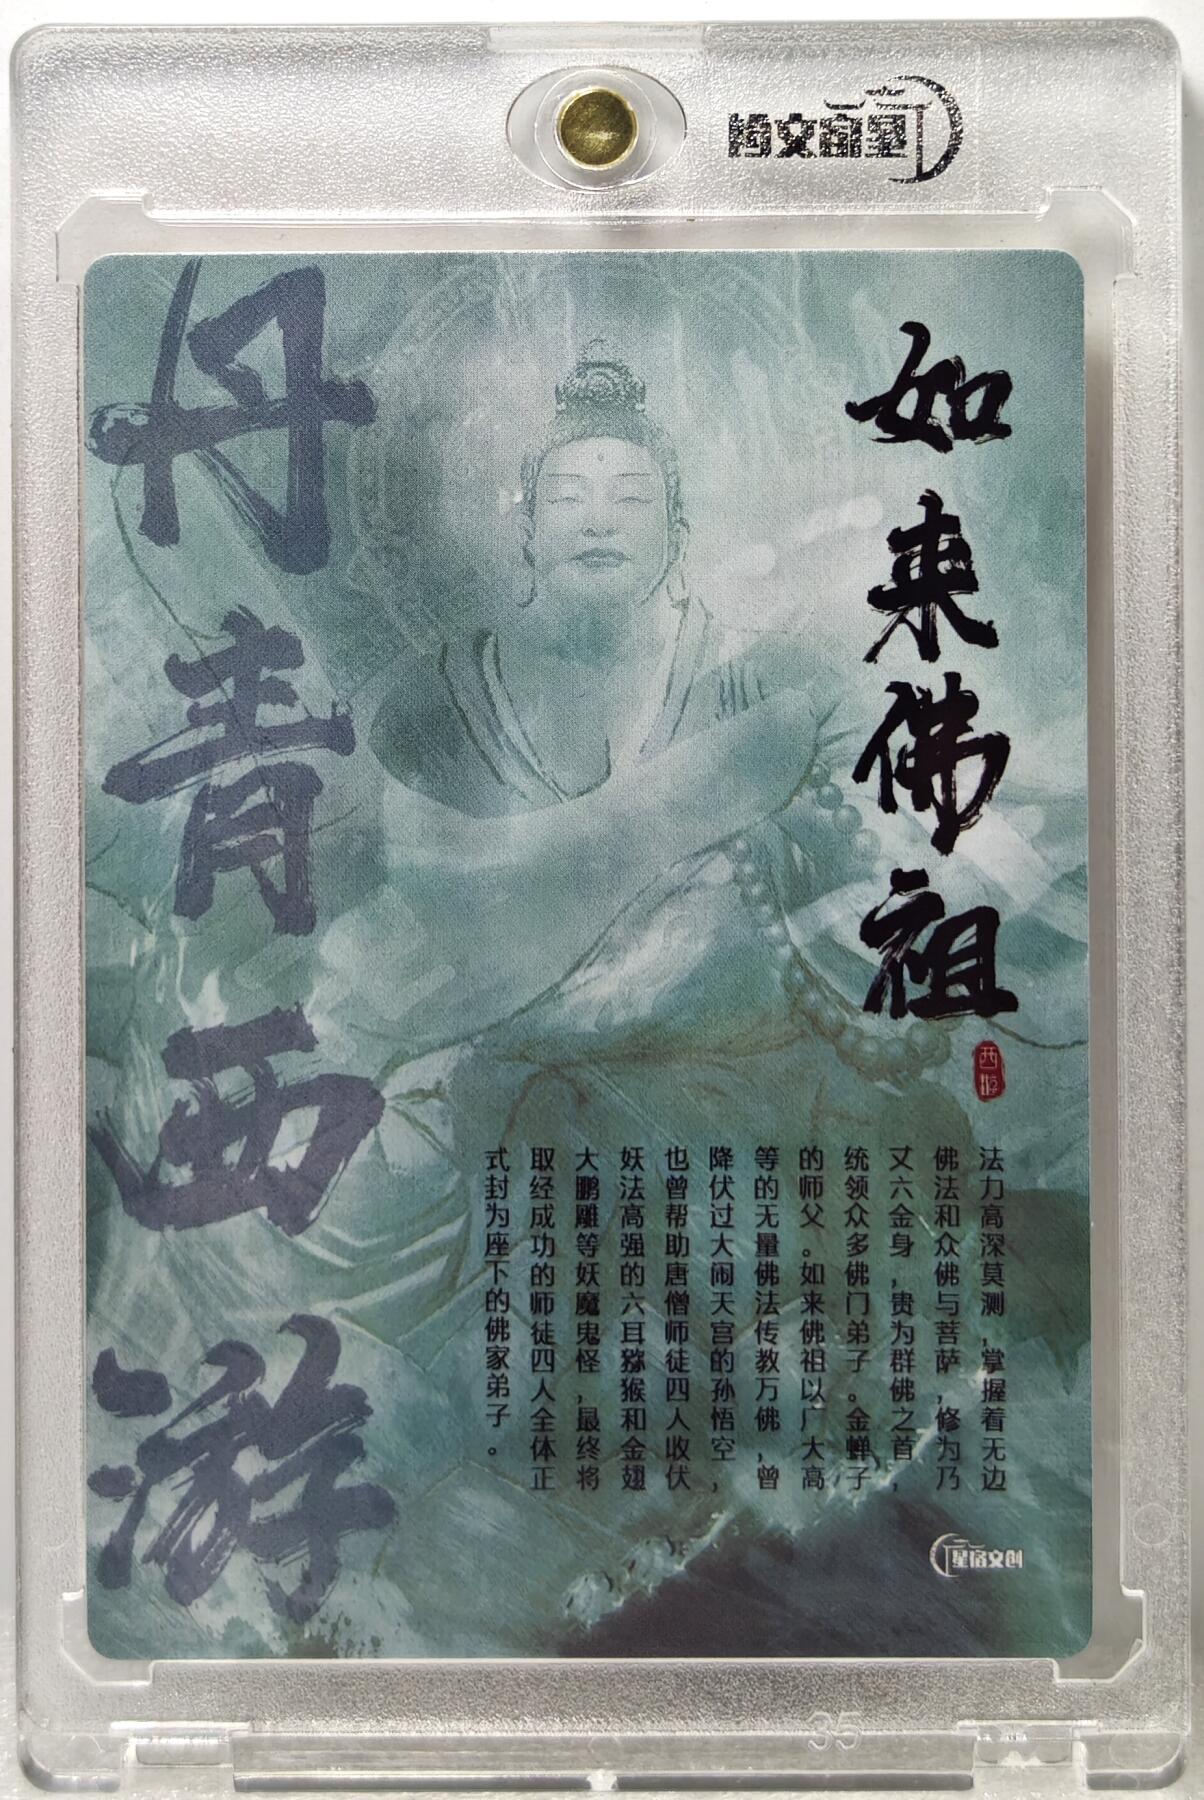 如来佛祖
西游
法力高深莫测，掌握着无边
佛法和众佛与菩萨，修为乃
丈六金身，贵为群佛之首，
统领众多佛门弟子。金蝉子
的师父。如来佛祖以广大高
等的无量佛法传教万佛，曾
降伏过大闹天宫的孙悟空，
也曾帮助唐僧师徒四人收伏
妖法高强的六耳猕猴和金翅
大鹏雕等妖魔鬼怪，最终将
取经成功的师徒四人全体正
式封为座下的佛家弟子。
丹青西游
星宿文创
星宿文创
35